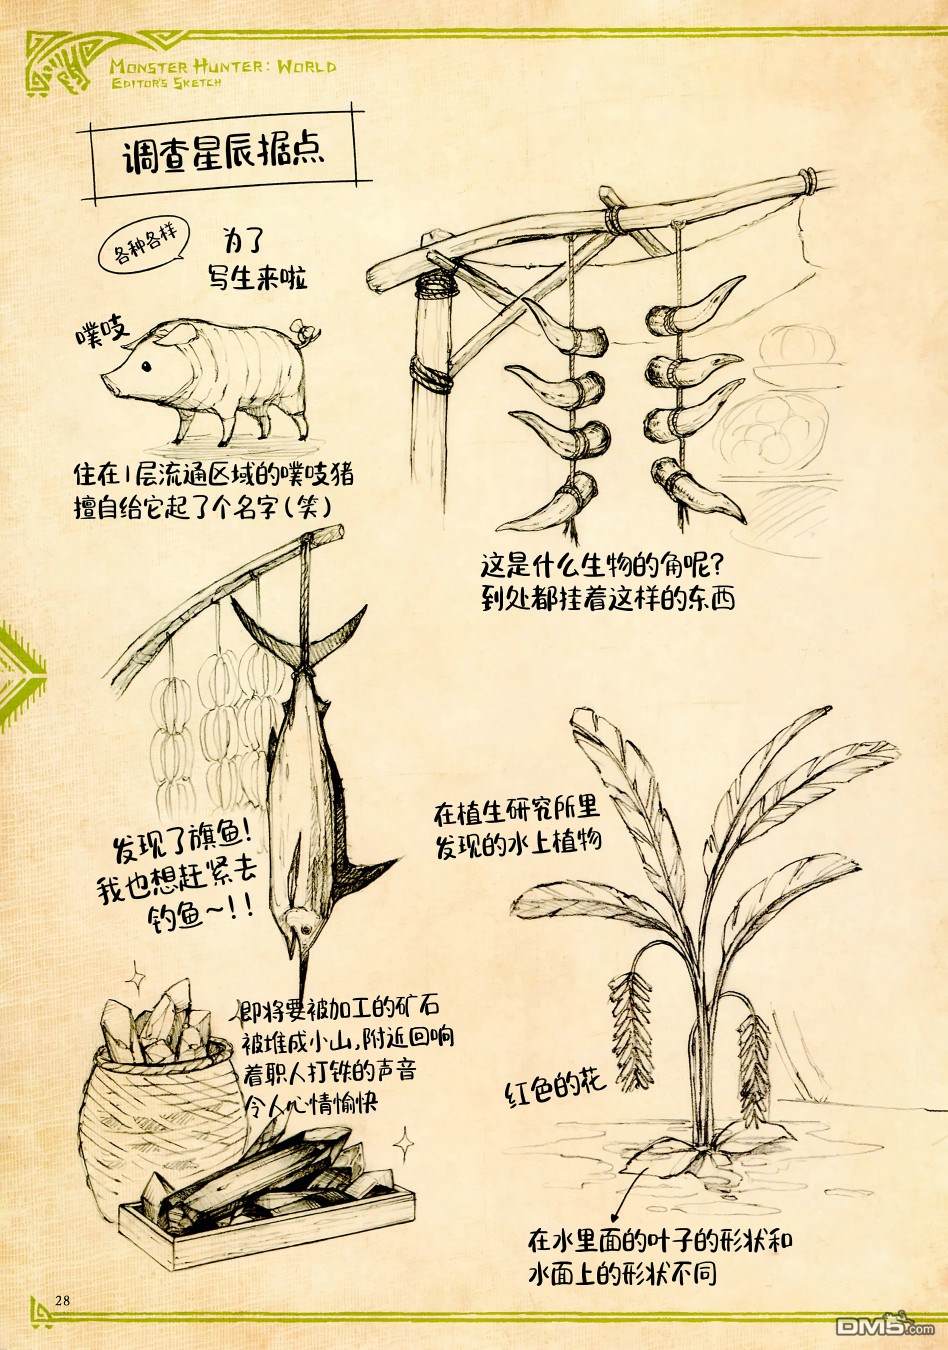 MONSTER HUNTER: WORLD
EDITOR'S SKETCH
调查星辰据点
各种各样
为了
写生来啦
噗吱
住在1层流通区域的噗吱猪
擅自给它起了个名字(笑)
这是什么生物的角呢?
到处都挂着这样的东西
发现了旗鱼!
我也想赶紧去
钓鱼~!!
在植生研究所里
发现的水上植物
即将要被加工的矿石
被堆成小山,附近回响
着职人打铁的声音
令人心情愉快
红色的花
在水里面的叶子的形状和
水面上的形状不同
28
DM5.com